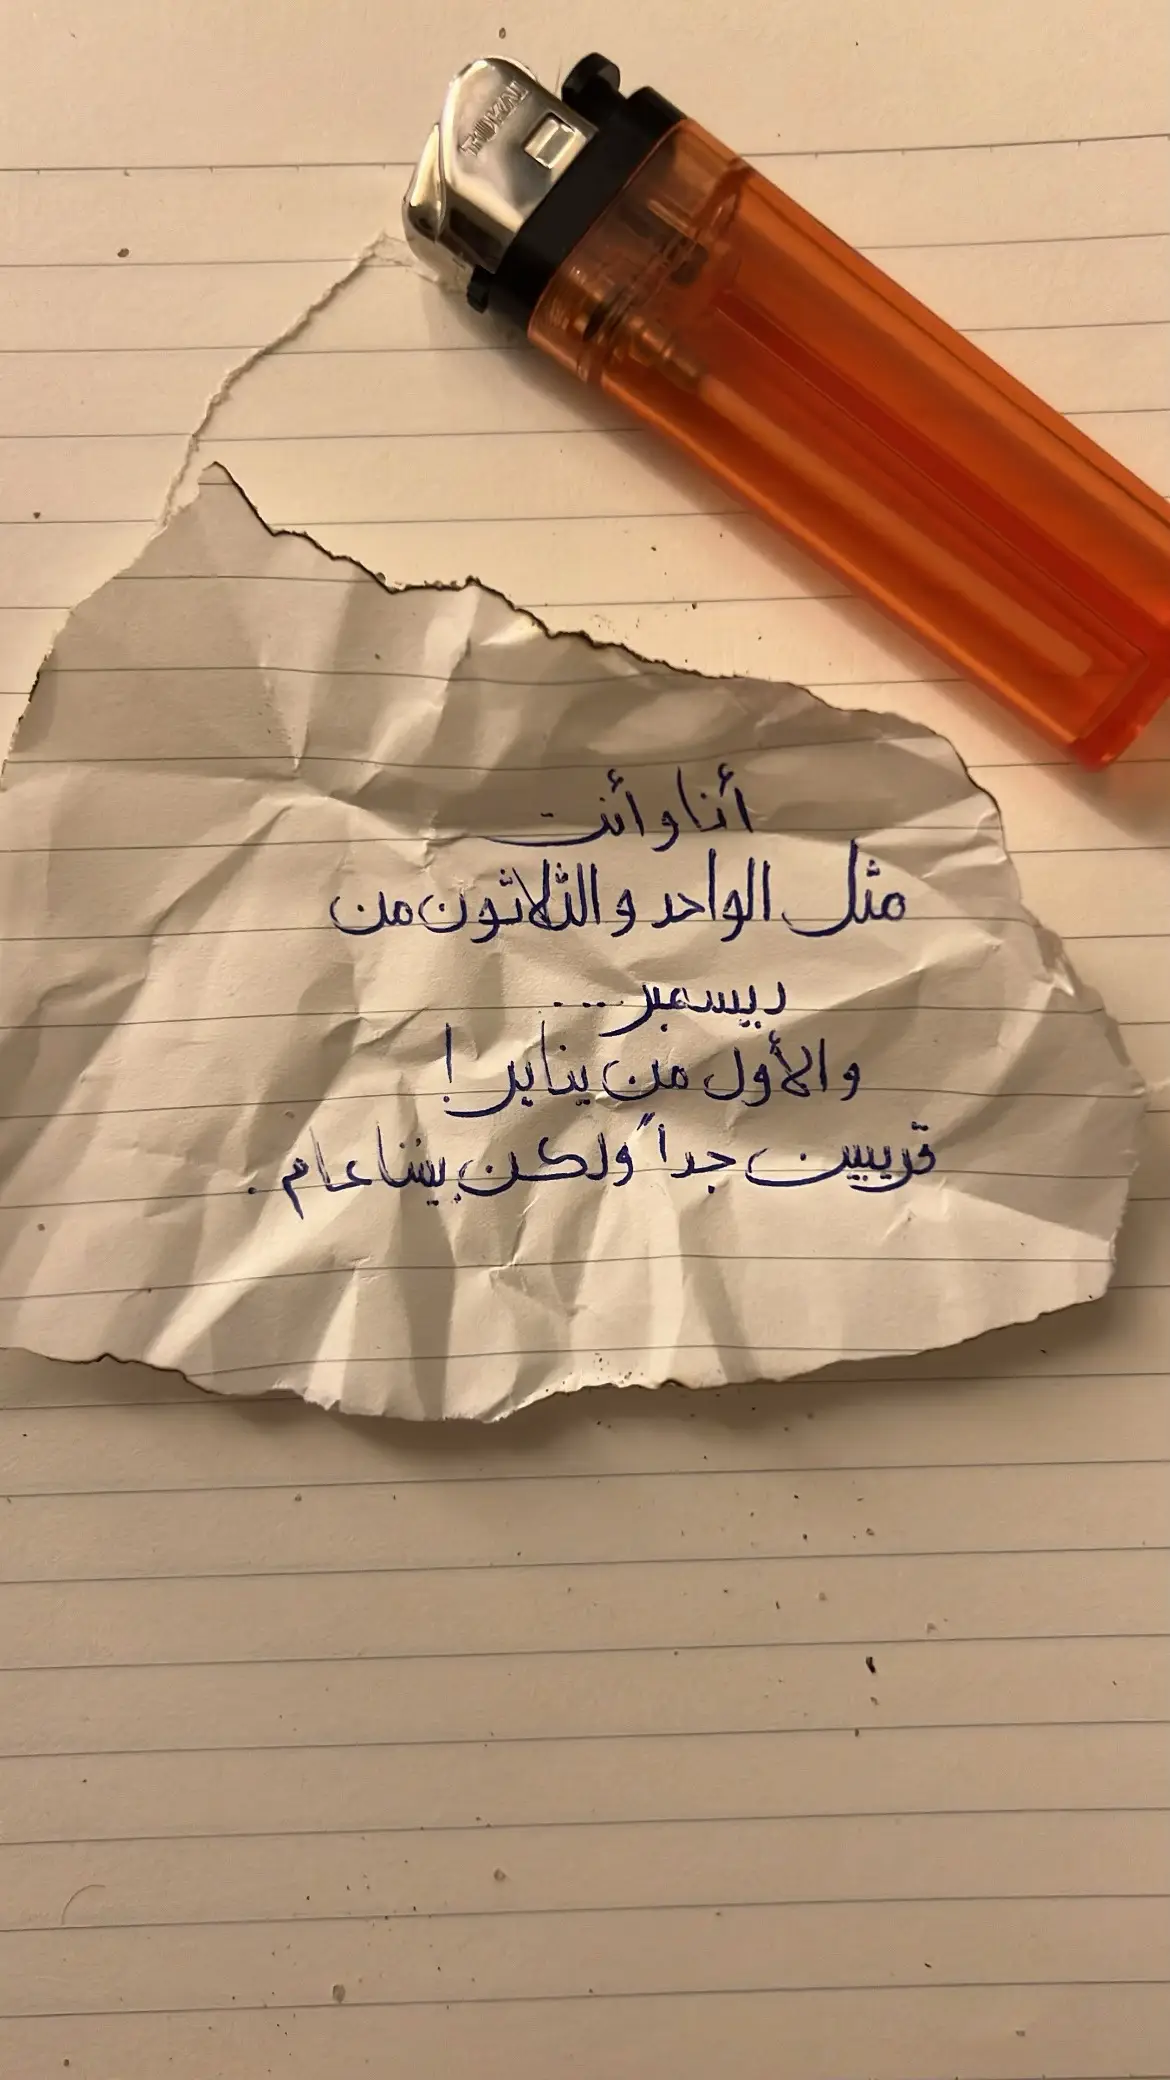 أنا و أنت
مثل الواحد و الثلاثون من
ديسمبر ...
و الأول من يناير !
قريبين جداً ولكن بيننا عام .